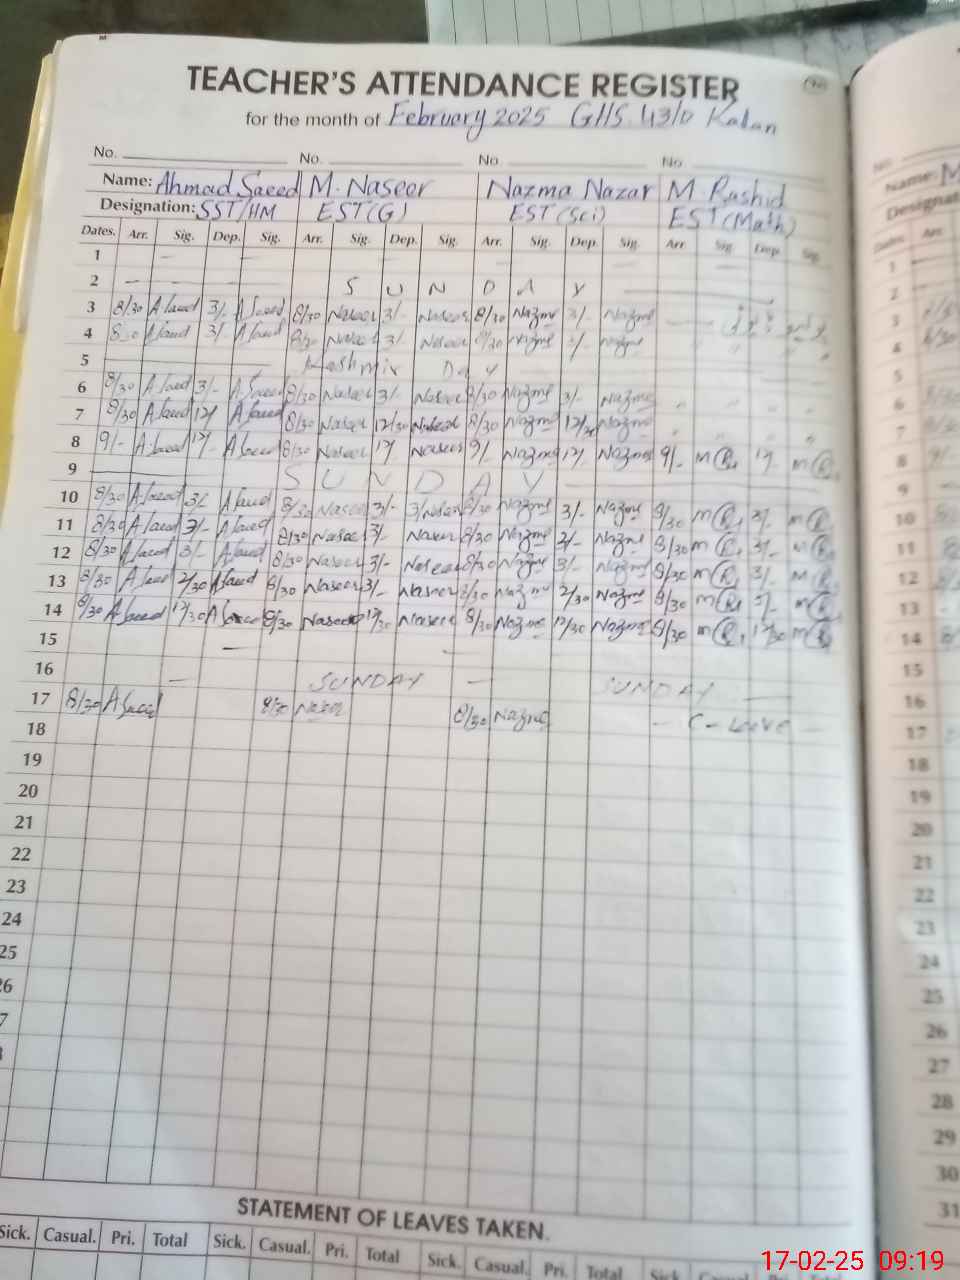 TEACHER'S ATTENDANCE REGISTER
for the month of February 2025 GHS 43/D Kalan
No. No. No. No.
Name: Ahmad Saeed M. Naseer Nazma Nazar M. Rashid
Designation: SST/HM EST(G) EST(Sci) EST(Math)
Dates. Arr. Sig. Dep. Sig. Arr. Sig. Dep. Sig. Arr. Sig. Dep. Sig. Arr. Sig. Dep. Sig.
1
2 SUNDAY
3 8/30 A Saeed 3/- A Saeed 8/30 Naseer 3/- Naseer 8/30 Nazma 3/- Nazma
4 8/30 A Saeed 3/- A Saeed 8/30 Naseer 3/- Naseer 8/30 Nazma 3/- Nazma
5 Kashmir Day
6 8/30 A Saeed 3/- A Saeed 8/30 Naseer 3/- Naseer 8/30 Nazma 3/- Nazma
7 8/30 A Saeed 12/ A Saeed 8/30 Naseer 12/30 Naseer 8/30 Nazma 12/30 Nazma
8 9/- A Saeed 12/- A Saeed 8/30 Naseer 12/ Naseer 9/- Nazma 12/ Nazma 9/- M R 12/- M R
9 SUNDAY
10 8/30 A Saeed 3/- A Saeed 8/30 Naseer 3/- Naseer 8/30 Nazma 3/- Nazma 8/30 M R 3/- M R
11 8/30 A Saeed 3/- A Saeed 8/30 Naseer 3/- Naseer 8/30 Nazma 3/- Nazma 8/30 M R 3/- M R
12 8/30 A Saeed 3/- A Saeed 8/30 Naseer 3/- Naseer 8/30 Nazma 3/- Nazma 8/30 M R 3/- M R
13 8/30 A Saeed 2/30 A Saeed 8/30 Naseer 3/- Naseer 8/30 Nazma 2/30 Nazma 8/30 M R 3/- M R
14 8/30 A Saeed 12/30 A Saeed 8/30 Naseer 12/30 Naseer 8/30 Nazma 12/30 Nazma 8/30 M R 12/30 M R
15
16 SUNDAY SUNDAY
17 8/30 A Saeed 8/30 Naseer 8/30 Nazma C-Leave
18
19
20
21
22
23
24
25
26
7
STATEMENT OF LEAVES TAKEN.
Sick. Casual. Pri. Total Sick. Casual. Pri. Total Sick. Casual. Pri. Total Sick
1
2
3
4
5
6
7
8
9
10
11
12
13
14
15
16
17
18
19
20
21
22
23
24
25
26
27
28
29
30
31
17-02-25 09:19